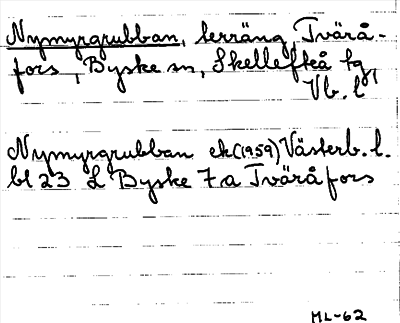 Nymyrgrubban, terräng, Tvärå-
fors, Byske sn, Skellefteå tg
Vb. l
Nymyrgrubban ek(1959) Västerb. l.
bl 23 L Byske 7a Tväråfors
ML-62